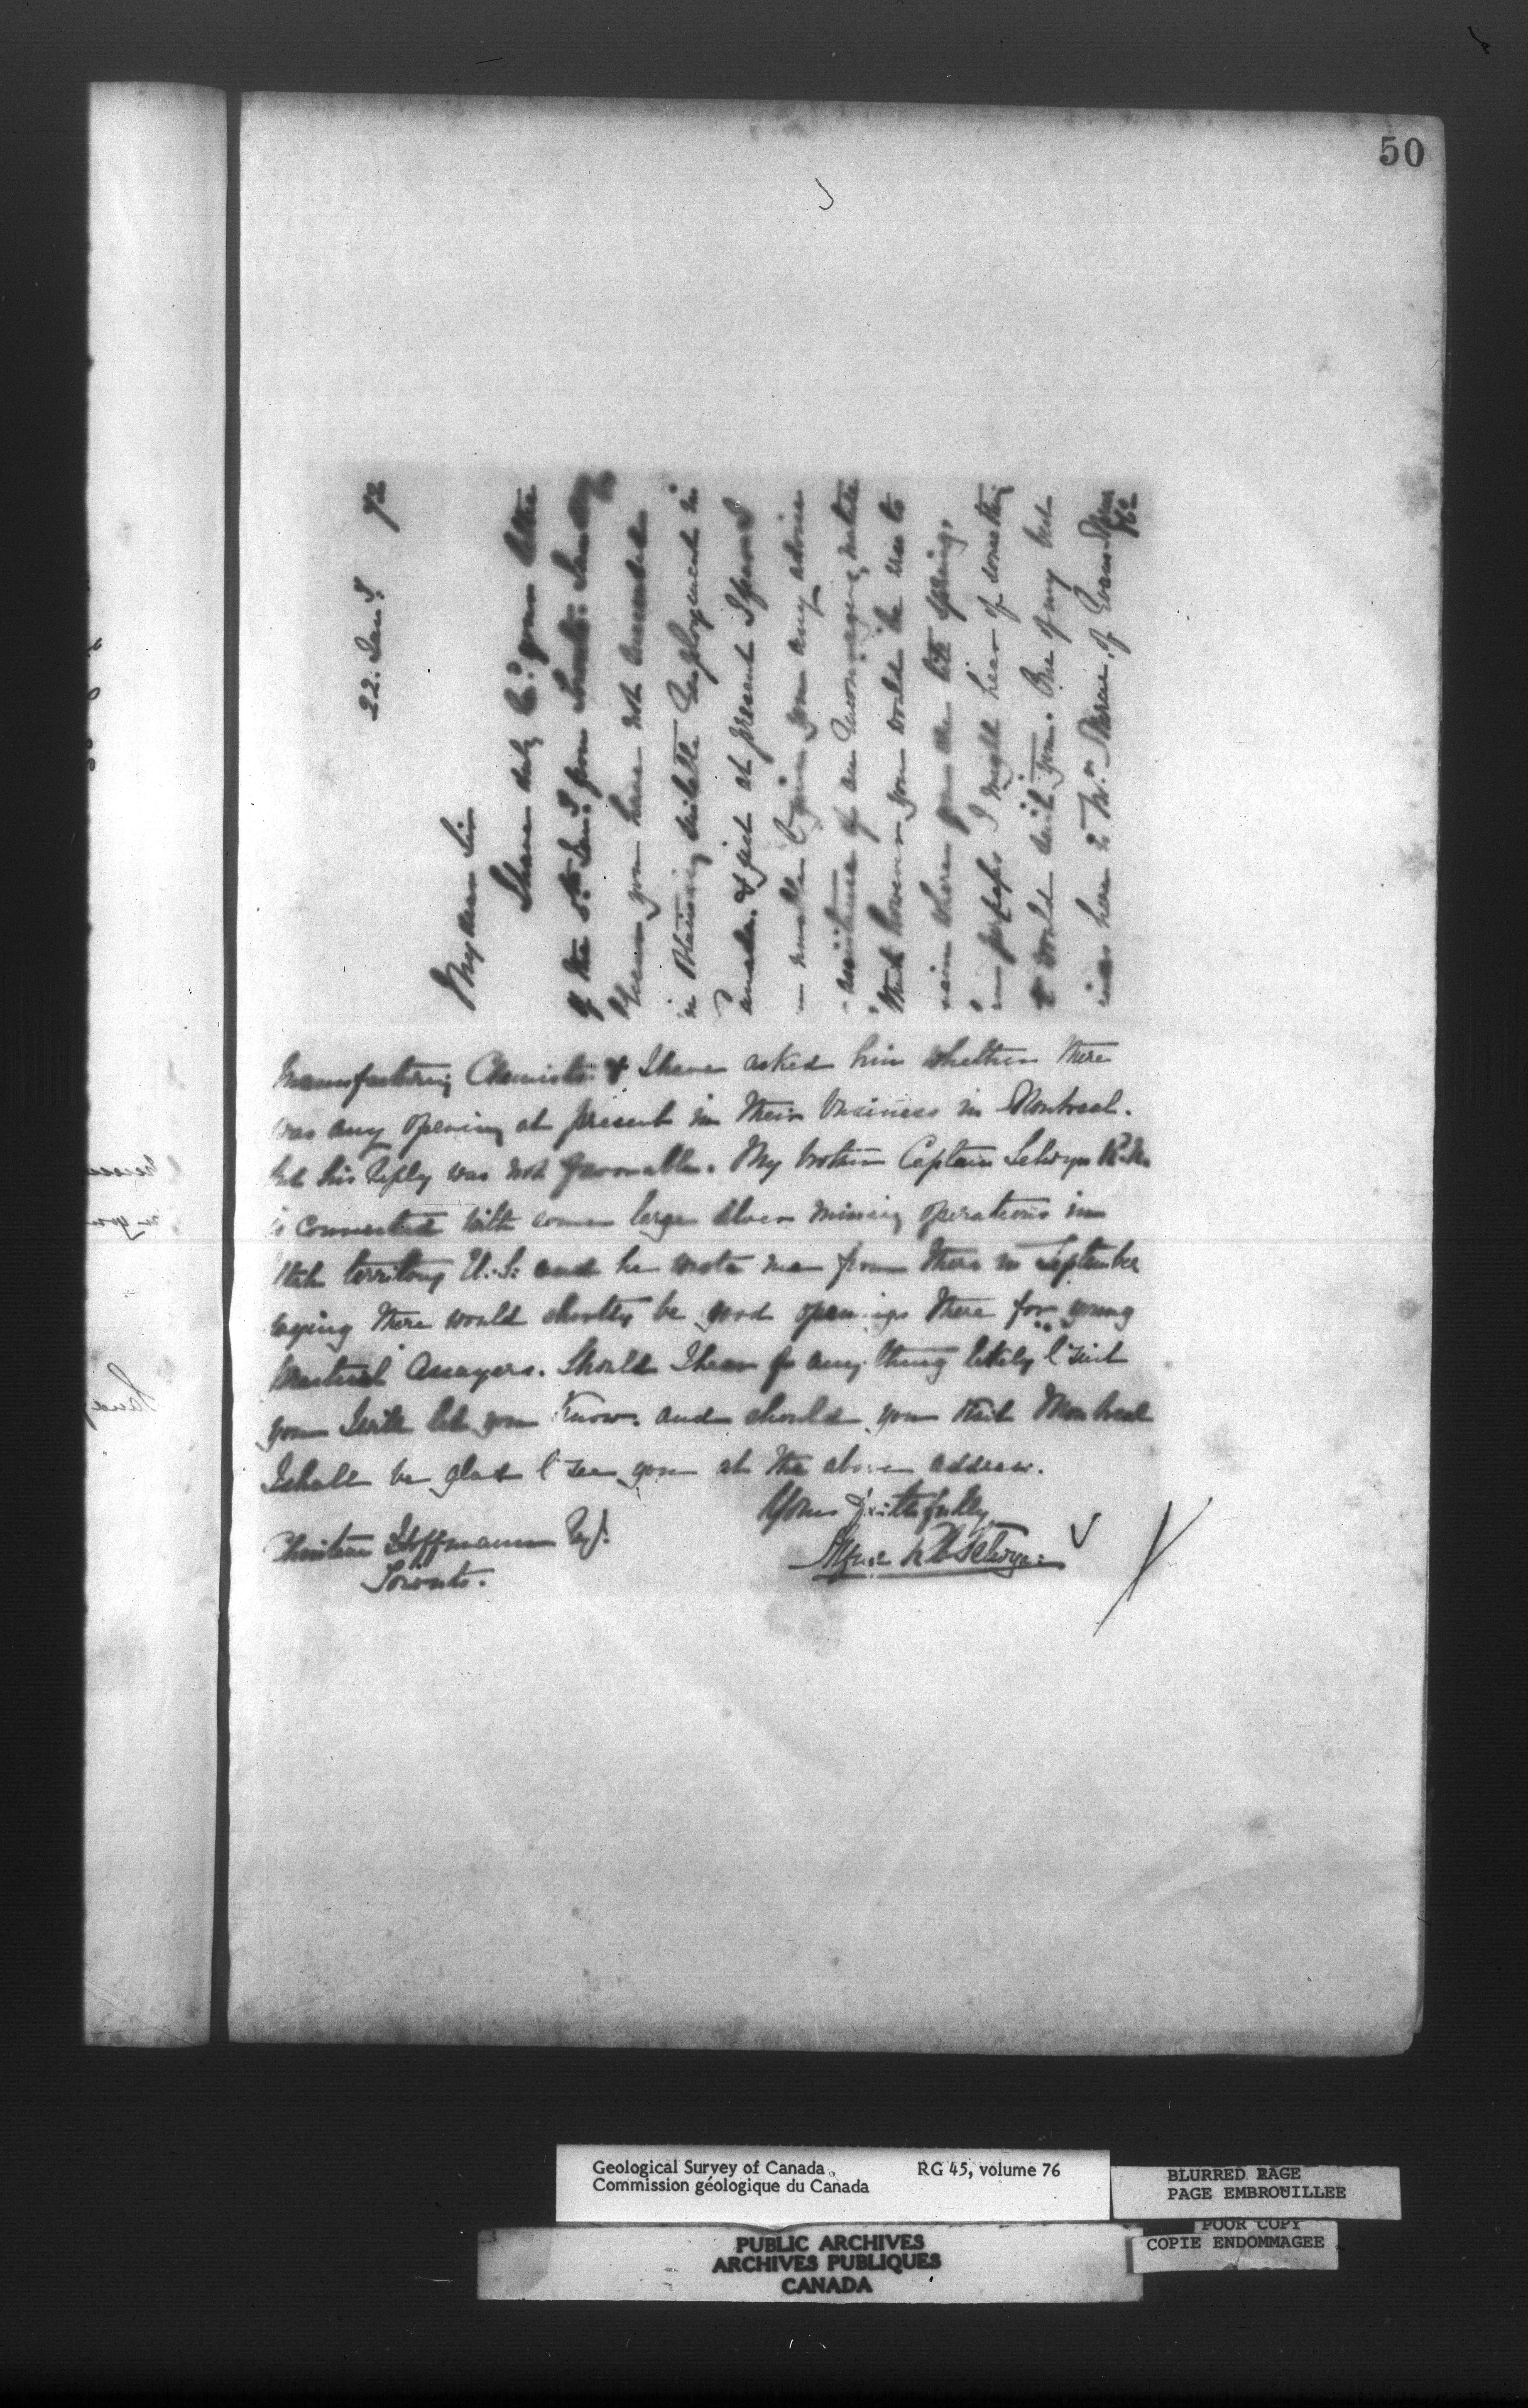 50
22. Jany. 72
My dear Sir
I have duly recd. your letter
of the 5th. Jany. from Toronto. I am sorry to
learn you have not succeeded
in Obtaining suitable Employment in
Canada. & just at present I fear I
unable to give you any advice
assistance of an Encouraging nature
What however you would be wise to
remain where you are till spring.
perhaps I might hear of something
would suit you. One of my best
here is Mr. of Evans
& Co
Manufacturing Chemists & I have asked him whether there
was any opening at present in their business in Montreal.
but his Reply was not favorable. My brother Captain Selwyn R.N.
is connected with some large silver mining operations in
Utah territory U.S: and he wrote me from there in September
saying there would shortly be good openings there for young
practical Assayers. Should I hear of any thing likely to suit
you I will let you Know. and should you visit Montreal
I shall be glad to see you at the above address.
Yours faithfully
Alfred R C Selwyn
Christian Hoffmann Esq.
Toronto.
Geological Survey of Canada RG 45, volume 76
Commission géologique du Canada
BLURRED PAGE
PAGE EMBROUILLEE
POOR COPY
COPIE ENDOMMAGEE
PUBLIC ARCHIVES
ARCHIVES PUBLIQUES
CANADA